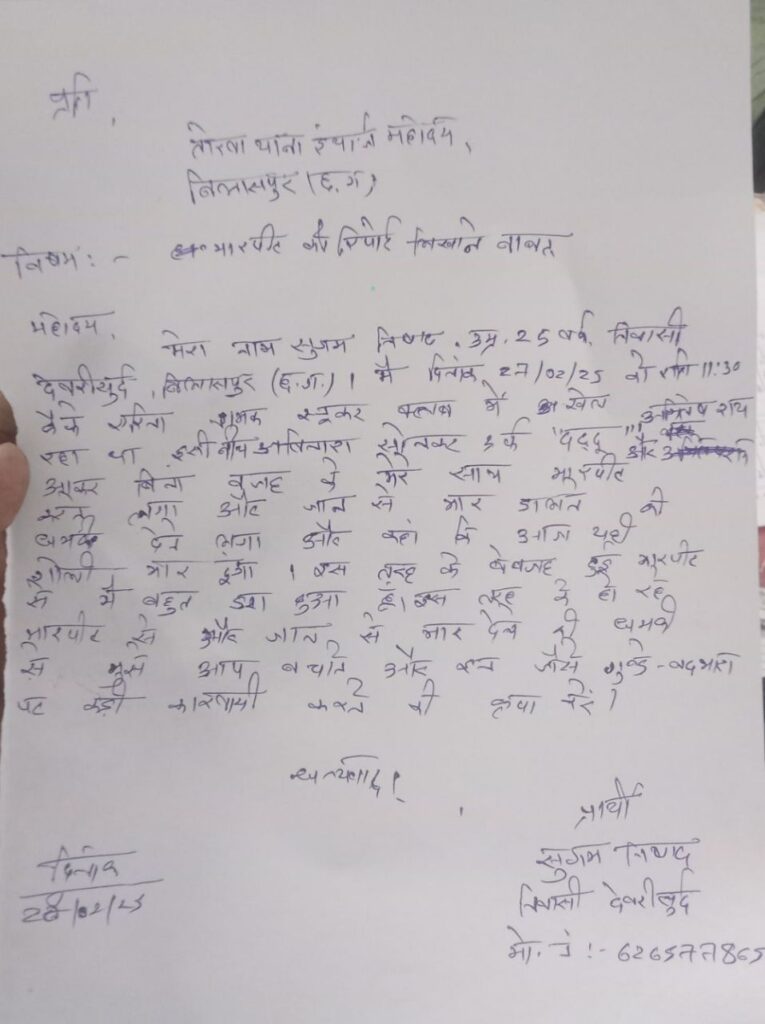 प्रति,
तोरवा थाना इंचार्ज महोदय,
बिलासपुर (छ.ग)
विषय :- मारपीट की रिपोर्ट लिखाने बाबत
महोदय,
मेरा नाम सुगम निषाद, उम्र. 25 वर्ष, निवासी
देवरीखुर्द, बिलासपुर (छ.ग.) । मै दिनांक 27/02/25 को रात्रि 11:30
स्नूकर क्लब में खेल अखिलेष राय
रहा था इसी बीच अविनाश सोनकर उर्फ "दददू" और
आकर बिना वजह के मेरे साथ मारपीट
करने लगा और जान से मार डालने की
धमकी देने लगा और कहा कि आज यही
गोली मार दुंगा । इस तरह के बेवजह हुई मारपीट
से मै बहुत डरा हुआ हूं। इस तरह के हो रहे
मारपीट से और जान से मार देने की धमकी
से मुझे आप बचाने और इन जैसे गुण्डे-बदमाश
पर कड़ी कारवायी करने की कृपा करें ।
धन्यवाद !
प्रार्थी
सुगम निषाद
निवासी देवरीखुर्द
मो. नं :- 626577865
दिनांक
28/02/25